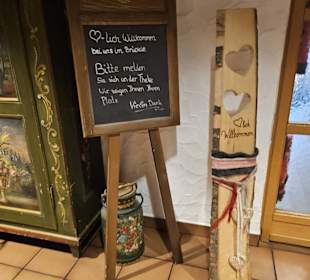 ♡-lich Willkommen
bei uns im Brückle
Bitte melden
Sie sich an der Theke
Wir zeigen Ihnen Ihren
Platz
Vielen Dank
♡lich
Willkommen